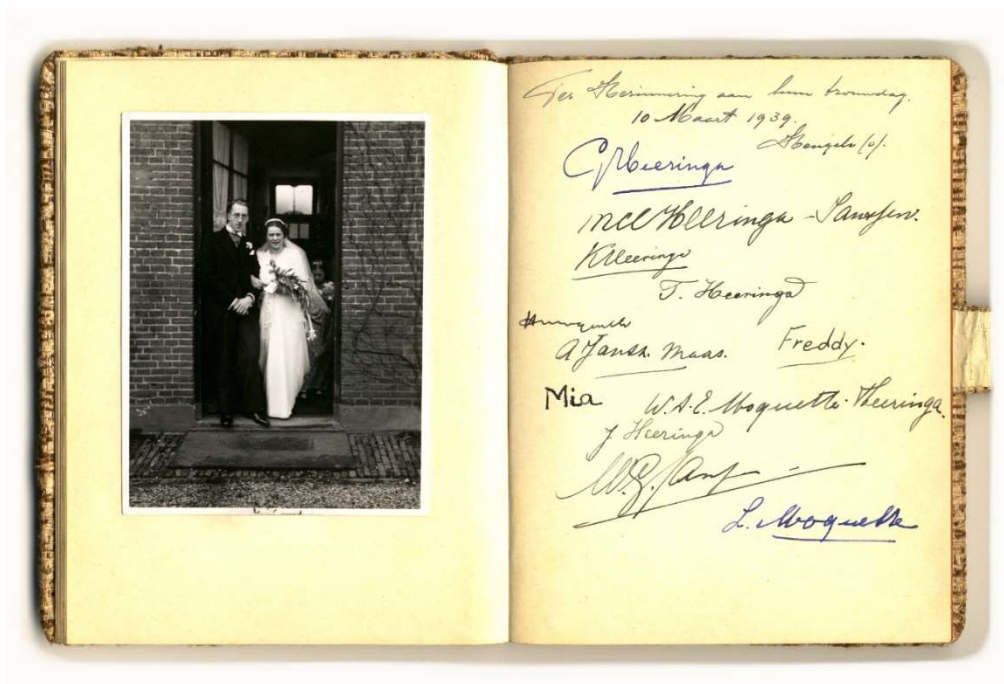 Ter Herinnering aan hun trouwdag.
10 Maart 1939.
Hengelo (o).
Heeringa
Heeringa - Janssen.
KHeeringa
T. Heeringa
A Janss. Maas. Freddy.
Mia W.A.E. Moquette-Heeringa.
J Heeringa
L. Moquette